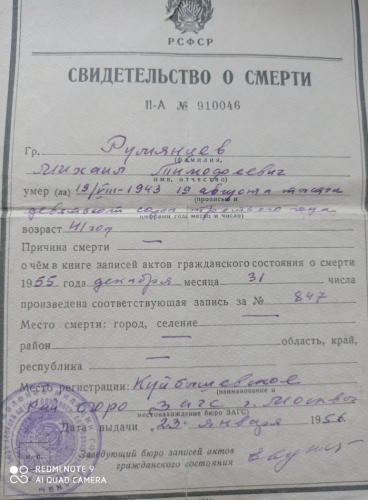 РСФСР
СВИДЕТЕЛЬСТВО О СМЕРТИ
II-А № 910046
Гр. Румянцев
(фамилия,
Михаил Тимофеевич
имя, отчество)
умер (ла) 19/VIII-1943 19 августа тысяча
(прописью и
девятьсот сорок третьего года
цифрами года месяца и число)
возраст 41 год
Причина смерти —
о чём в книге записей актов гражданского состояния о смерти
1955 года декабря месяца 31 числа
произведена соответствующая запись за № 847
Место смерти: город, селение —
район — область, край,
республика —
Место регистрации: Куйбышевское
(наименование и
рай бюро загс г. Москвы
местонахождение бюро ЗАГС)
Дата выдачи 23 января 1956
Заведующий бюро записей актов
гражданского состояния
REDMI NOTE 9
AI QUAD CAMERA